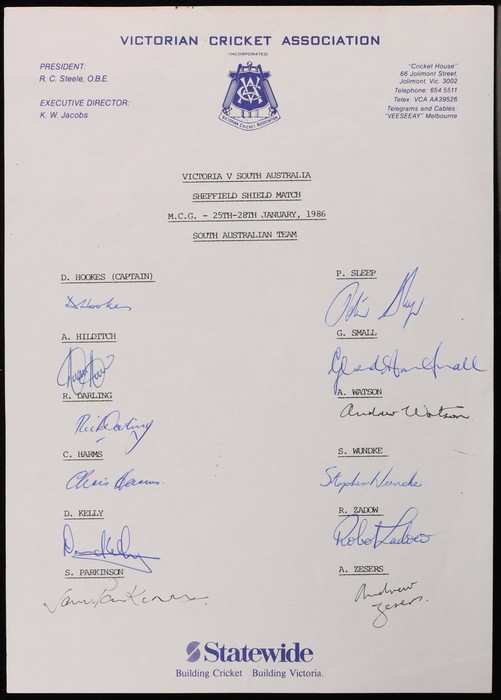 VICTORIAN CRICKET ASSOCIATION
(INCORPORATED)
PRESIDENT:
R. C. Steele, O.B.E.
EXECUTIVE DIRECTOR:
K. W. Jacobs
VCA
VICTORIAN CRICKET ASSOCIATION
"Cricket House"
66 Jolimont Street,
Jolimont, Vic. 3002
Telephone: 654 5511
Telex: VCA AA39526
Telegrams and Cables:
"VEESEEAY" Melbourne
VICTORIA V SOUTH AUSTRALIA
SHEFFIELD SHIELD MATCH
M.C.G. - 25TH-28TH JANUARY, 1986
SOUTH AUSTRALIAN TEAM
D. HOOKES (CAPTAIN)
D Hookes
A. HILDITCH
R. DARLING
Rick Darling
C. HARMS
Chris Harms
D. KELLY
Dave Kelly
S. PARKINSON
Sam Parkinson
P. SLEEP
Peter Sleep
G. SMALL
Gladstone Small
A. WATSON
Andrew Watson
S. WUNDKE
Stephen Wundke
R. ZADOW
Robert Zadow
A. ZESERS
Andrew
Zesers.
Statewide
Building Cricket Building Victoria.